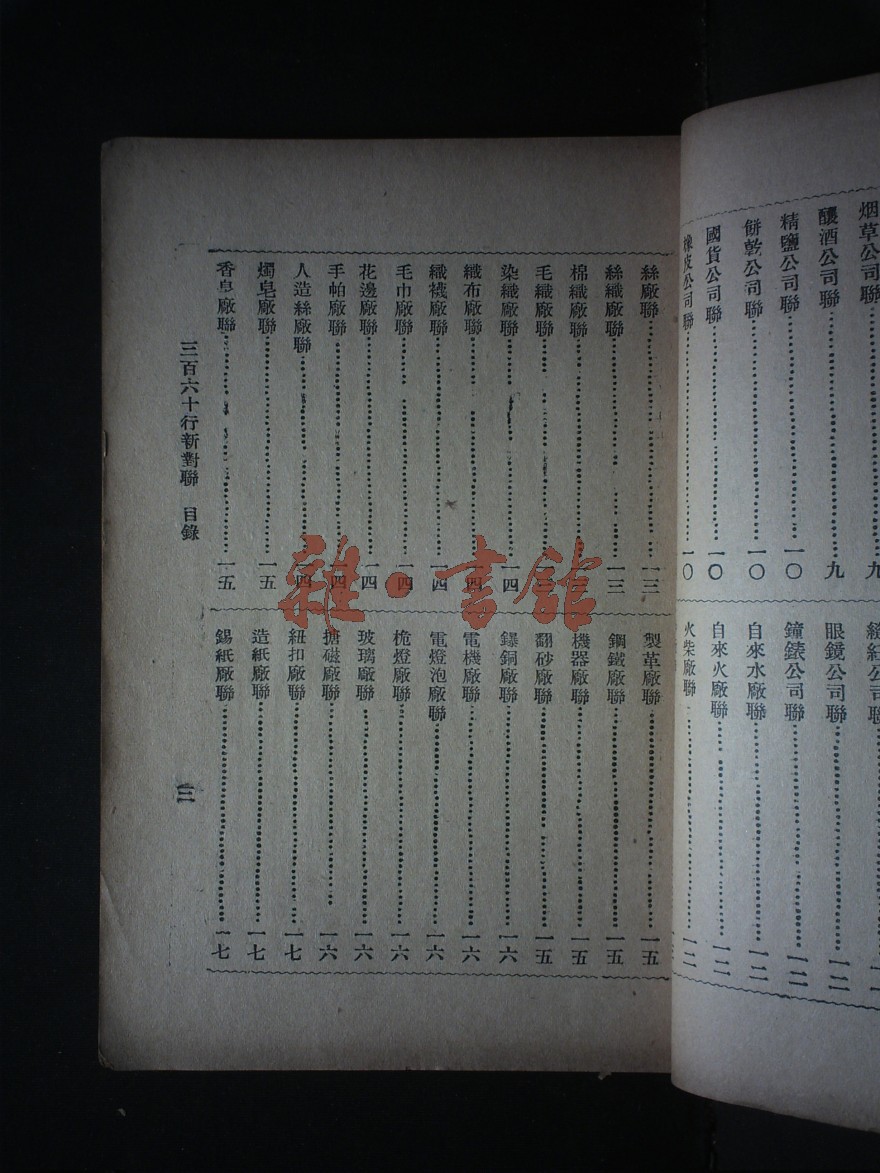 烟草公司聯 九
釀酒公司聯 九
精鹽公司聯 一〇
餅乾公司聯 一〇
國貨公司聯 一〇
橡皮公司聯 一〇
眼鏡公司聯 一二
鐘錶公司聯 一二
自來水廠聯 一二
自來火廠聯 一二
火柴廠聯 一二
絲廠聯 一三
絲織廠聯 一三
棉織廠聯
毛織廠聯
染織廠聯 一四
織布廠聯 一四
織襪廠聯 一四
毛巾廠聯 一四
花邊廠聯 一四
手帕廠聯 一四
人造絲廠聯 一四
燭皂廠聯 一五
香皂廠聯 一五
製革廠聯 一五
鋼鐵廠聯 一五
機器廠聯 一五
翻砂廠聯 一五
鑤銅廠聯 一六
電機廠聯 一六
電燈泡廠聯 一六
桅燈廠聯 一六
玻璃廠聯 一六
搪磁廠聯 一六
紐扣廠聯 一七
造紙廠聯 一七
錫紙廠聯 一七
三百六十行新對聯 目錄
三
雜·書館